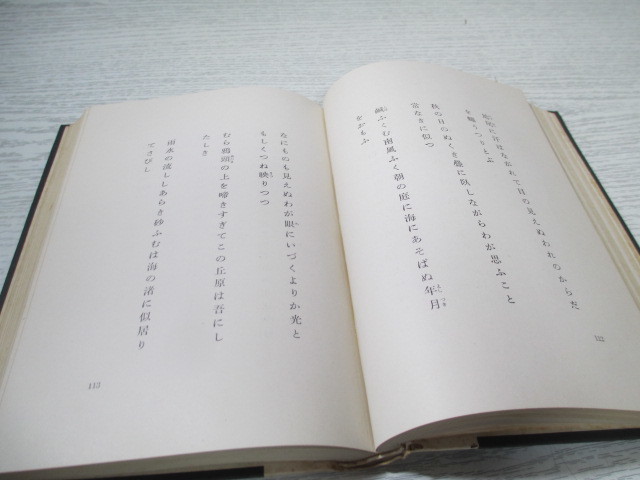 はなれて目の見えぬわれのからだ
を
秋の日のぬくき畳に臥しながらわが思ふこと
常なきに似つ
鹹ふくむ南風ふく朝の庭に海にあそばぬ年月
をおもふ
112
なにものも見えぬわが眼にいづくよりか光と
もしくつね映りつつ
むら鴉頭の上を啼きすぎてこの丘原は吾にし
たしき
雨水の流ししあらき砂ふむは海の渚に似居り
てさびし
113